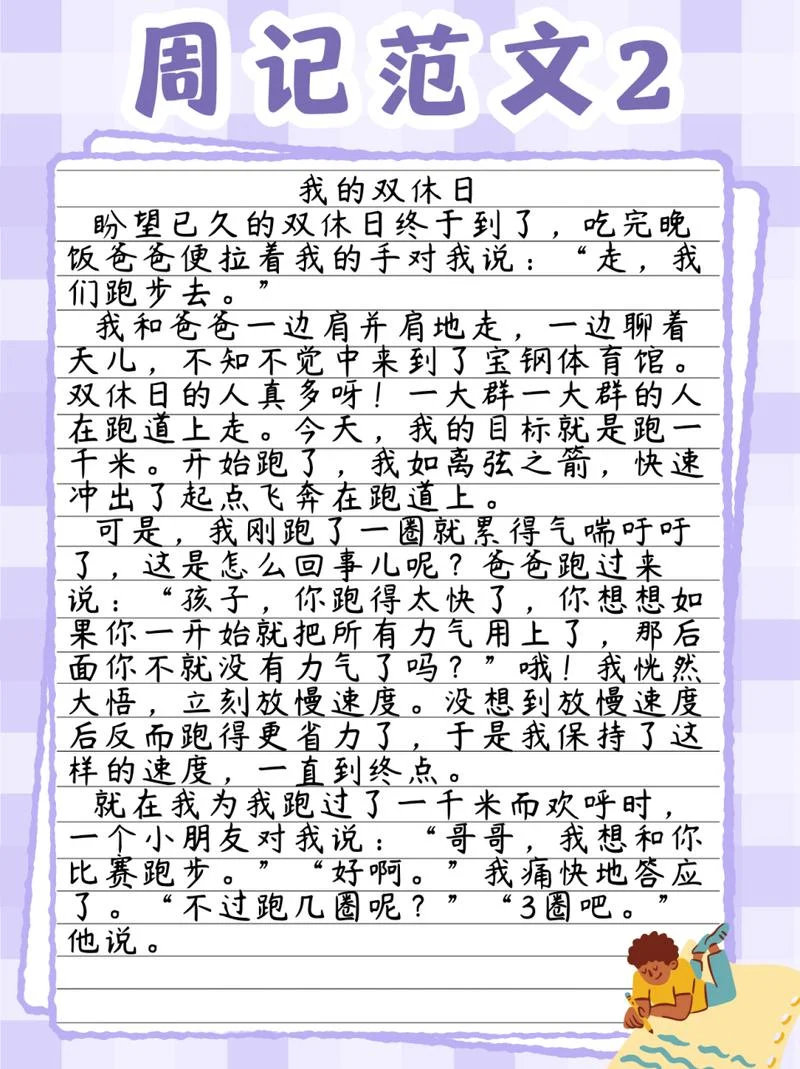 周记范文2
我的双休日
盼望已久的双休日终于到了，吃完晚
饭爸爸便拉着我的手对我说：“走，我
们跑步去。”
我和爸爸一边肩并肩地走，一边聊着
天儿，不知不觉中来到了宝钢体育馆。
双休日的人真多呀！一大群一大群的人
在跑道上走。今天，我的目标就是跑一
千米。开始跑了，我如离弦之箭，快速
冲出了起点飞奔在跑道上。
可是，我刚跑了一圈就累得气喘吁吁
了，这是怎么回事儿呢？爸爸跑过来
说：“孩子，你跑得太快了，你想想如
果你一开始就把所有力气用上了，那后
面你不就没有力气了吗？”哦！我恍然
大悟，立刻放慢速度。没想到放慢速度
后反而跑得更省力了，于是我保持了这
样的速度，一直到终点。
就在我为我跑过了一千米而欢呼时，
一个小朋友对我说：“哥哥，我想和你
比赛跑步。”“好啊。”我痛快地答应
了。“不过跑几圈呢？”“3圈吧。”
他说。